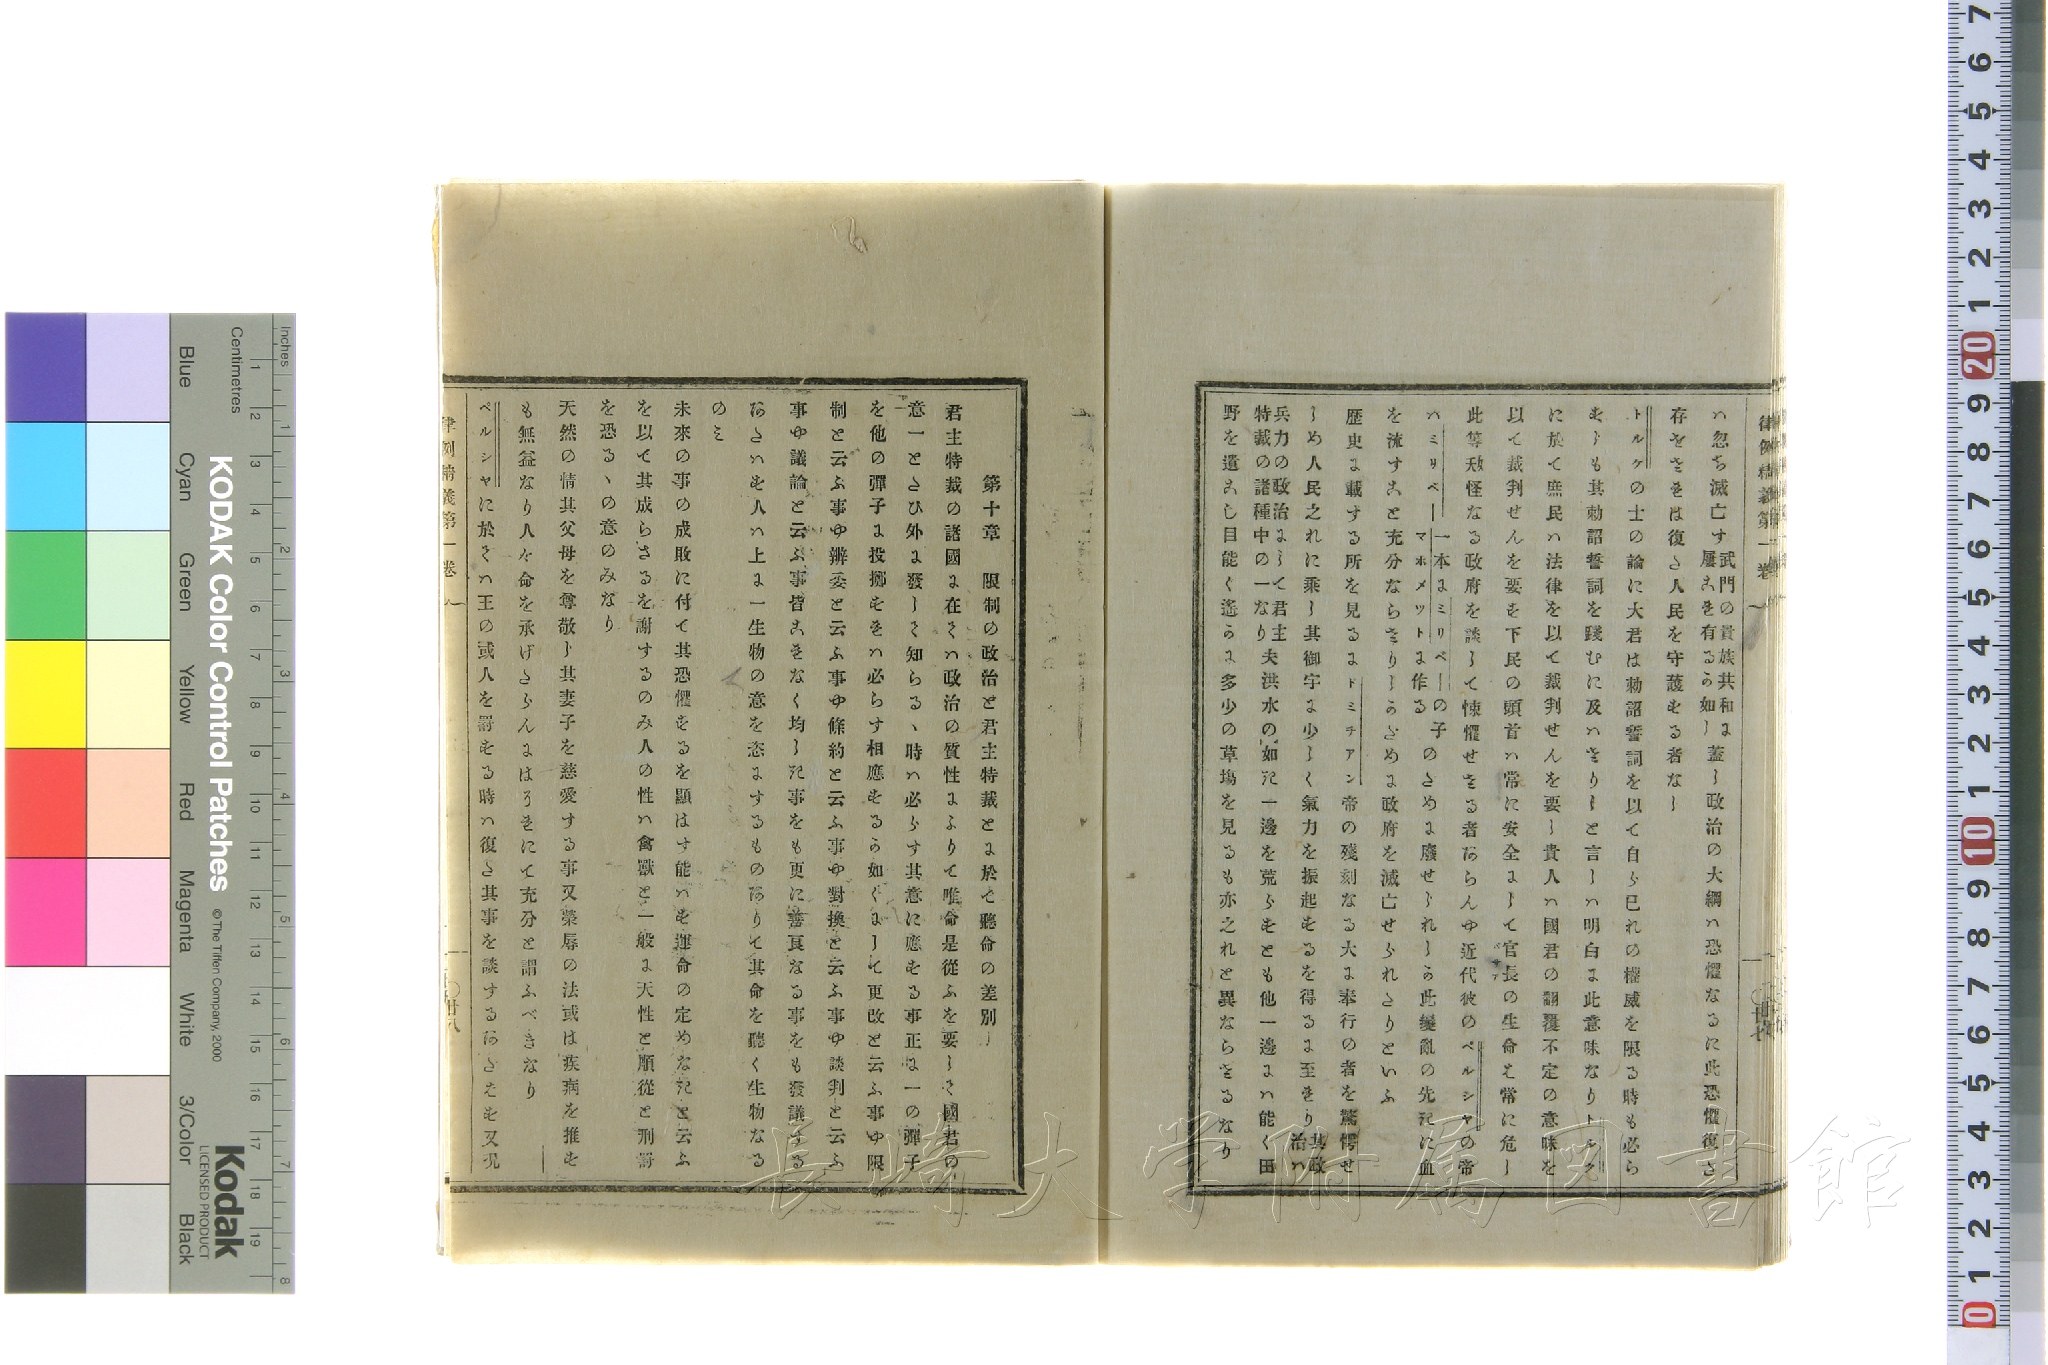 律例精義第一卷
ハ忽ち滅亡す武門の貴族共和ま屢〻を有るら如し蓋し政治の大綱ハ恐懼なるに此恐懼復さ
存をさ〻は復さ人民を守護もる者なし
トルケの士の論に大君は勅詔誓詞を以て自ら已れの權威を限る時も必ら
もしも其勅詔誓詞を踐むに及ハさりしと言しハ明白ま此意味なりトルケ
に於て庶民ハ法律を以て裁判せんを要し貴人ハ國君の翻覆不定の意味を
以て裁判せんを要を下民の頭首ハ常に安全まして官長の生命も常に危し
此等㤥怪なる政府を談して悚懼せさる者あらんや近代彼のペルシヤの帝
ハミリベー一本まミリベーの子マホメットま作るのためま廢せられしら此變亂の先きに血
を流すこと充分ならさりしらためま政府を滅亡せられたりといふ
歷史ま載する所を見るまドミチアン帝の殘刻なる大ま奉行の者を驚愕せ
しめ人民之れに乘し其御宇ま少しく氣力を振起もるを得るま至れり其政治ハ
兵力の政治まして君主特裁の諸種中の一なり夫洪水の如き一邊を荒らもとも他一邊まハ能く田
野を遺こし目能く遙らま多少の草塲を見るも亦之れと異ならさるなり
第十章　限制の政治と君主特裁とま於て聽命の差別
君主特裁の諸國ま在てハ政治の質性まよりて唯命是從ふを要して國君の
意一とたひ外ま發して知らるゝ時ハ必らす其意に應もる事正ま一の彈子
を他の彈子ま投擲もれハ必らす相應もるら如くまして更改と云ふ事や限
制と云ふ事や辨委と云ふ事や條約と云ふ事や對換と云ふ事や談判と云ふ
事や議論と云ふ事皆これなく均しき事をも更に善良なる事をも發議する
あたハも人ハ上ま一生物の意を恣まするものありて其命を聽く生物なる
のミ
未來の事の成敗に付て其恐懼もるを顯はす能ハも運命の定めなきと云ふ
を以て其成らさるを謝するのみ人の性ハ禽獸と一般ま天性と順從と刑罸
を恐るゝの意のみなり
天然の情其父母を尊敬し其妻子を慈愛する事又榮辱の法或は疾病を推も
も無益なり人々命を承けたらんまはこれにて充分と謂ふべきなり
ペルシヤに於てハ王の或人を罸もる時ハ復た其事を談するあたハも又況
律例精義第一卷
長崎大学附属図書館
KODAK Color Control Patches
© The Tiffen Company, 2000
Kodak
LICENSED PRODUCT
Centimetres
Inches
Blue
Cyan
Green
Yellow
Red
Magenta
White
3/Color
Black